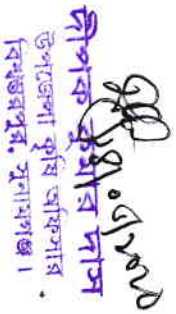 দীপক কুমার দাস
উপজেলা কৃষি অফিসার
বিশ্বম্ভরপুর, সুনামগঞ্জ।